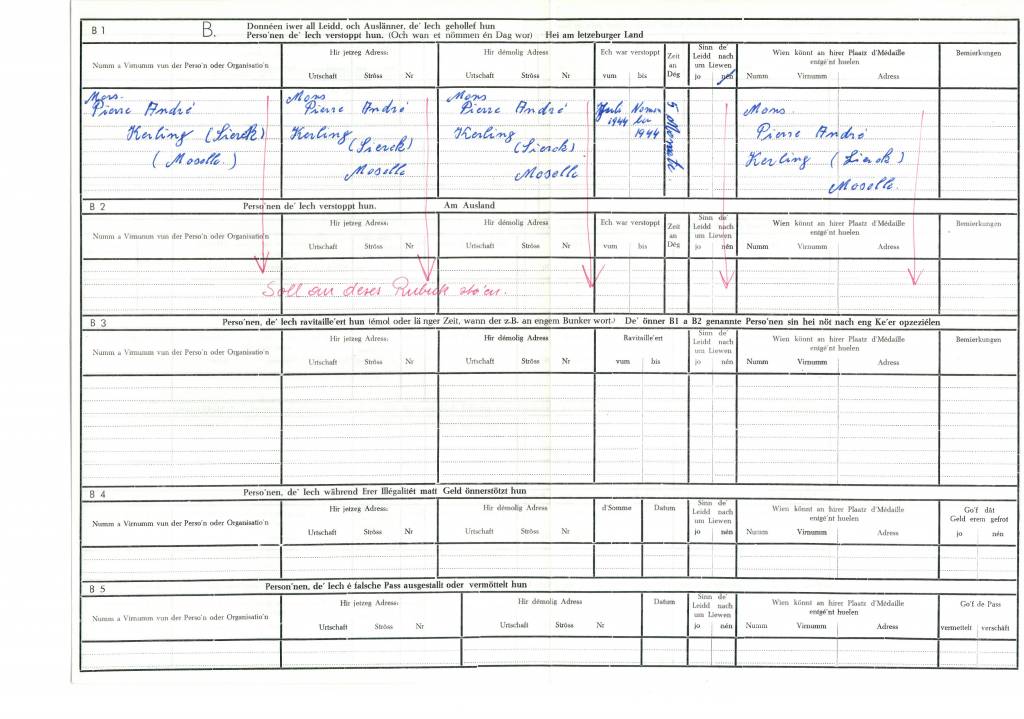 B 1
B.
Donnéen iwer all Leidd, och Auslänner, de' Iech gehollef hun
Perso'nen de' Iech verstoppt hun. (Och wan et nömmen én Dag wor) Hei am letzeburger Land
Numm a Virnumm vun der Perso'n oder Organisatio'n
Hir jetzeg Adress:
Urtschaft Ströss Nr
Hir démolig Adress
Urtschaft Ströss Nr
Ech war verstoppt
vum bis
Zeit
an
Dég
Sinn de'
Leidd nach
um Liewen
jo nén
Wien könnt an hirer Plaatz d'Médaille
entgé'nt huelen
Numm Virnumm Adress
Bemierkungen
Mons.
Pierre André
Kerling (Sierck)
(Moselle.)
Mons
Pierre André
Kerling
(Sierck)
Moselle
Mons
Pierre André
Kerling
(Sierck)
Moselle
1944
1944
5
Mons.
Pierre André
Kerling (Sierck)
Moselle.
B 2
Perso'nen de' Iech verstoppt hun. Am Ausland
Numm a Virnumm vun der Perso'n oder Organisatio'n
Hir jetzeg Adress:
Urtschaft Ströss Nr
Hir démolig Adress
Urtschaft Ströss Nr
Ech war verstoppt
vum bis
Zeit
an
Dég
Sinn de'
Leidd nach
um Liewen
jo nén
Wien könnt an hirer Plaatz d'Médaille
entgé'nt huelen
Numm Virnumm Adress
Bemierkungen
Soll an deser Rubrik sto'en.
B 3
Perso'nen, de' Iech ravitaille'ert hun (émol oder lä nger Zeit, wann der z.B. an engem Bunker wort.) De' önner B1 a B2 genannte Perso'nen sin hei nöt nach eng Ke'er opzeziélen
Numm a Virnumm vun der Perso'n oder Organisatio'n
Hir jetzeg Adress:
Urtschaft Ströss Nr
Hir démolig Adress
Urtschaft Ströss Nr
Ravitaille'ert
vum bis
Sinn de'
Leidd nach
um Liewen
jo nén
Wien könnt an hirer Plaatz d'Médaille
entgé'nt huelen
Numm Virnumm Adress
Bemierkungen
B 4
Perso'nen, de' Iech während Erer Illégalitét matt Geld önnerstötzt hun
Numm a Virnumm vun der Perso'n oder Organisatio'n
Hir jetzeg Adress:
Urtschaft Ströss Nr
Hir démolig Adress
Urtschaft Ströss Nr
d'Somme Datum
Sinn de'
Leidd nach
um Liewen
jo nén
Wien könnt an hirer Plaatz d'Médaille
entgé'nt huelen
Numm Virnumm Adress
Go'f dât
Geld erem gefrot
jo nén
B 5
Person'nen, de' Iech é falsche Pass ausgestallt oder vermöttelt hun
Numm a Virnumm vun der Perso'n oder Organisatio'n
Hir jetzeg Adress:
Urtschaft Ströss Nr
Hir démolig Adress
Urtschaft Ströss Nr
Datum
Sinn de'
Leidd nach
um Liewen
jo nén
Wien könnt an hirer Plaatz d'Médaille
entgé'nt huelen
Numm Virnumm Adress
Go'f de Pass
vermettelt verschäft